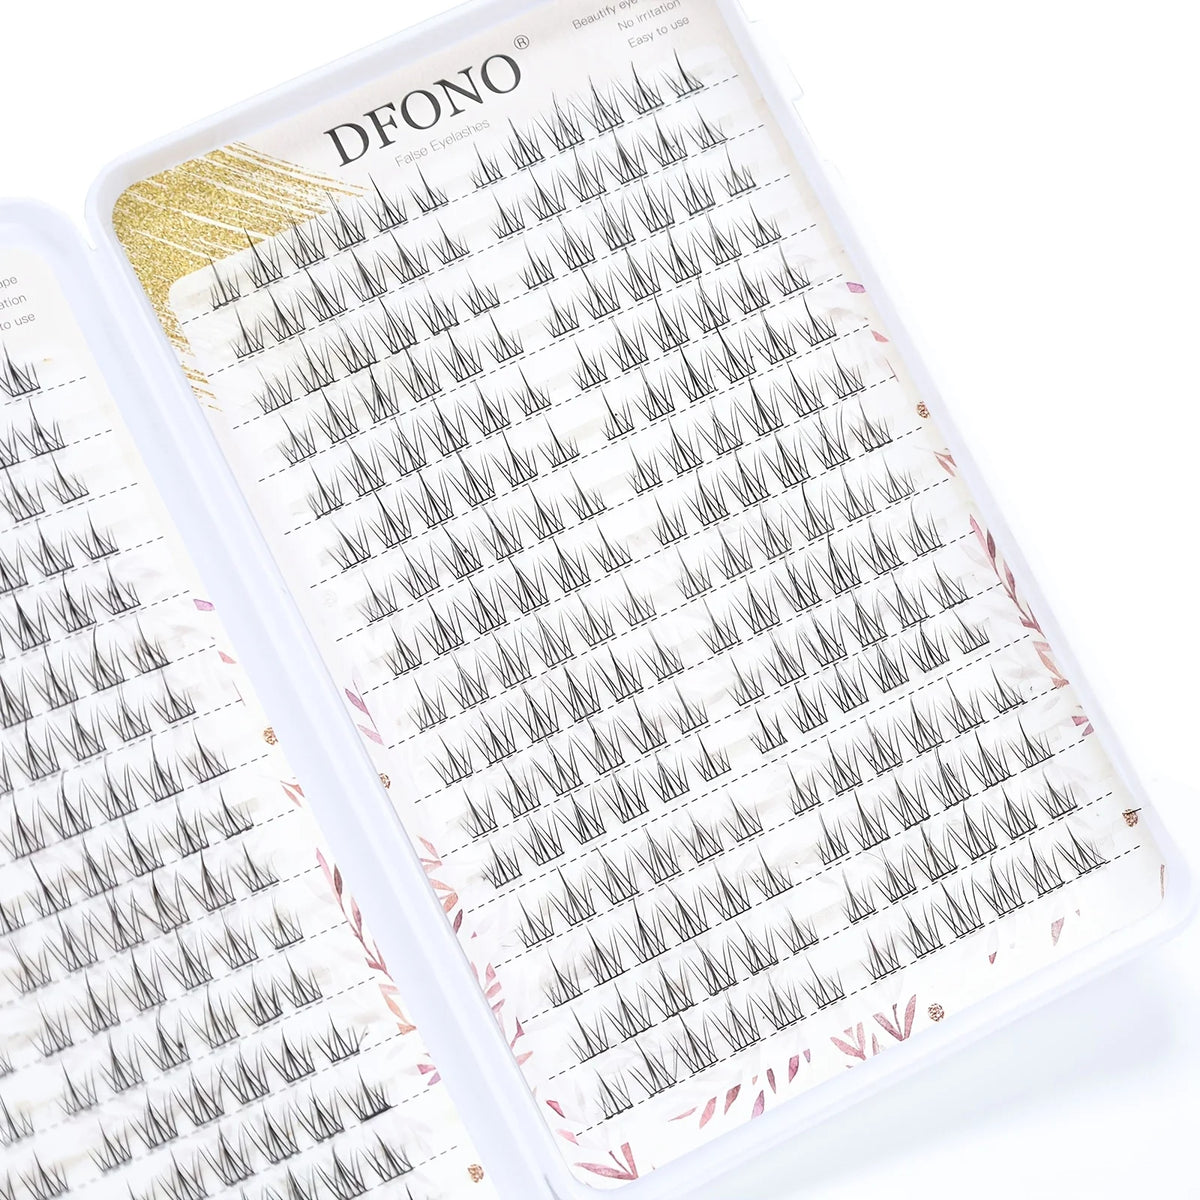 DFONO®
False Eyelashes
Beautify eye
No irritation
Easy to use
to use